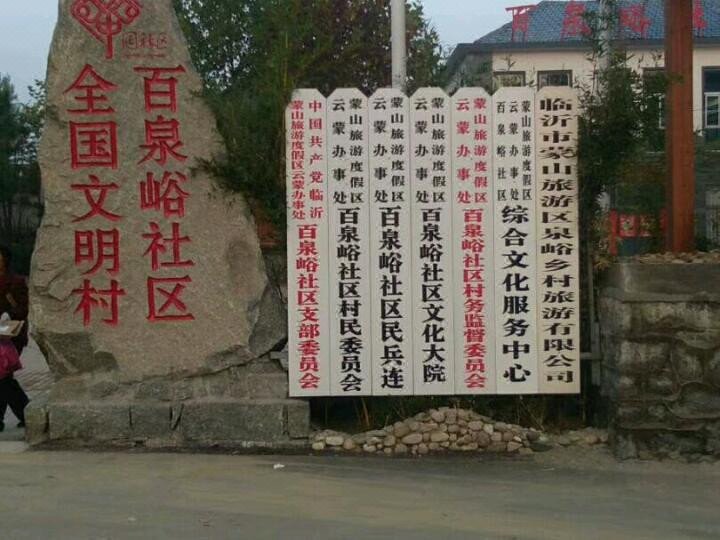 百泉峪社区
全国文明村
中国共产党临沂
蒙山旅游度假区云蒙办事处
百泉峪社区支部委员会
蒙山旅游度假区
云蒙办事处
百泉峪社区村民委员会
蒙山旅游度假区
云蒙办事处
百泉峪社区民兵连
蒙山旅游度假区
云蒙办事处
百泉峪社区文化大院
蒙山旅游度假区
云蒙办事处
百泉峪社区村务监督委员会
蒙山旅游度假区
云蒙办事处
百泉峪社区
综合文化服务中心
临沂市蒙山旅游区泉峪乡村旅游有限公司
百泉峪